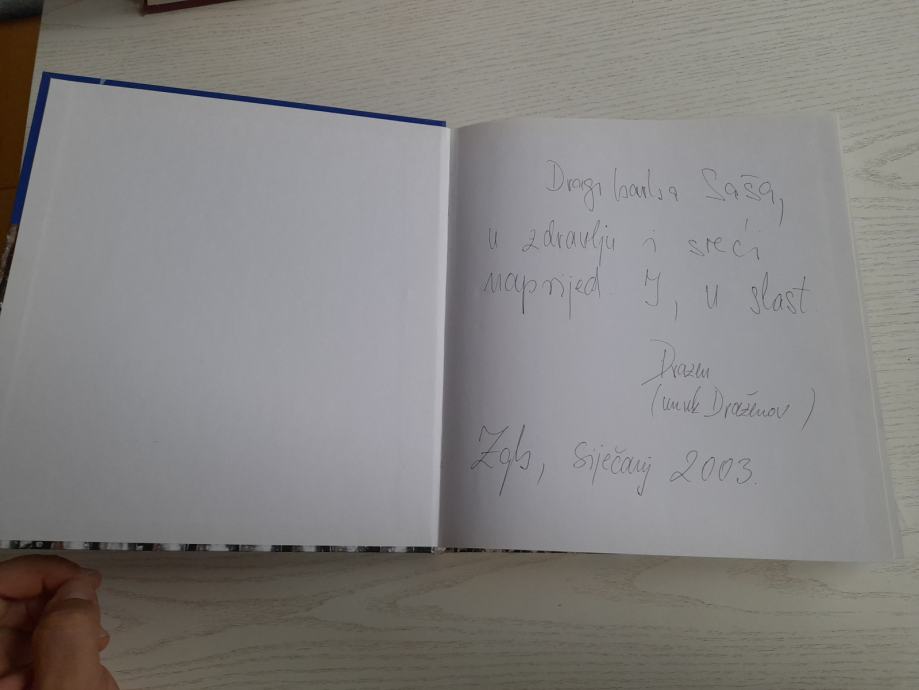 Dragi barba Saša,
u zdravlju i sreći
naprijed. I, u slast
Dražen
(unuk Draženov)
Zgb, Siječanj 2003.